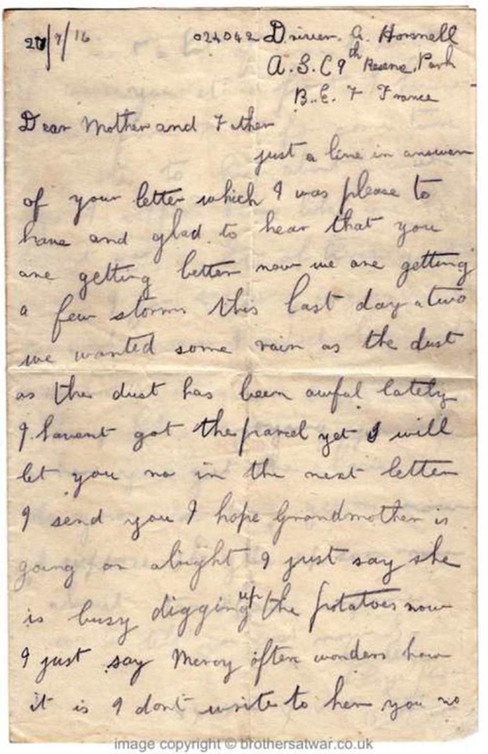 27/7/16 024042 Driver. A. Horsnell
A. S. C 9th Reserve. Park
B. E. F France
Dear Mother and Father
just a line in answer
of your letter which I was please to
have and glad to hear that you
are getting better now we are getting
a few storms this last day a two
we wanted some rain as the dust
as the dust has been awful lately
I havent got the parcel yet I will
let you no in the next letter
I send you I hope Grandmother is
going on alright I just say she
is busy digging up the potatoes now
I just say Mercy often wonders how
it is I dont write to her you no
image copyright © brothersatwar.co.uk